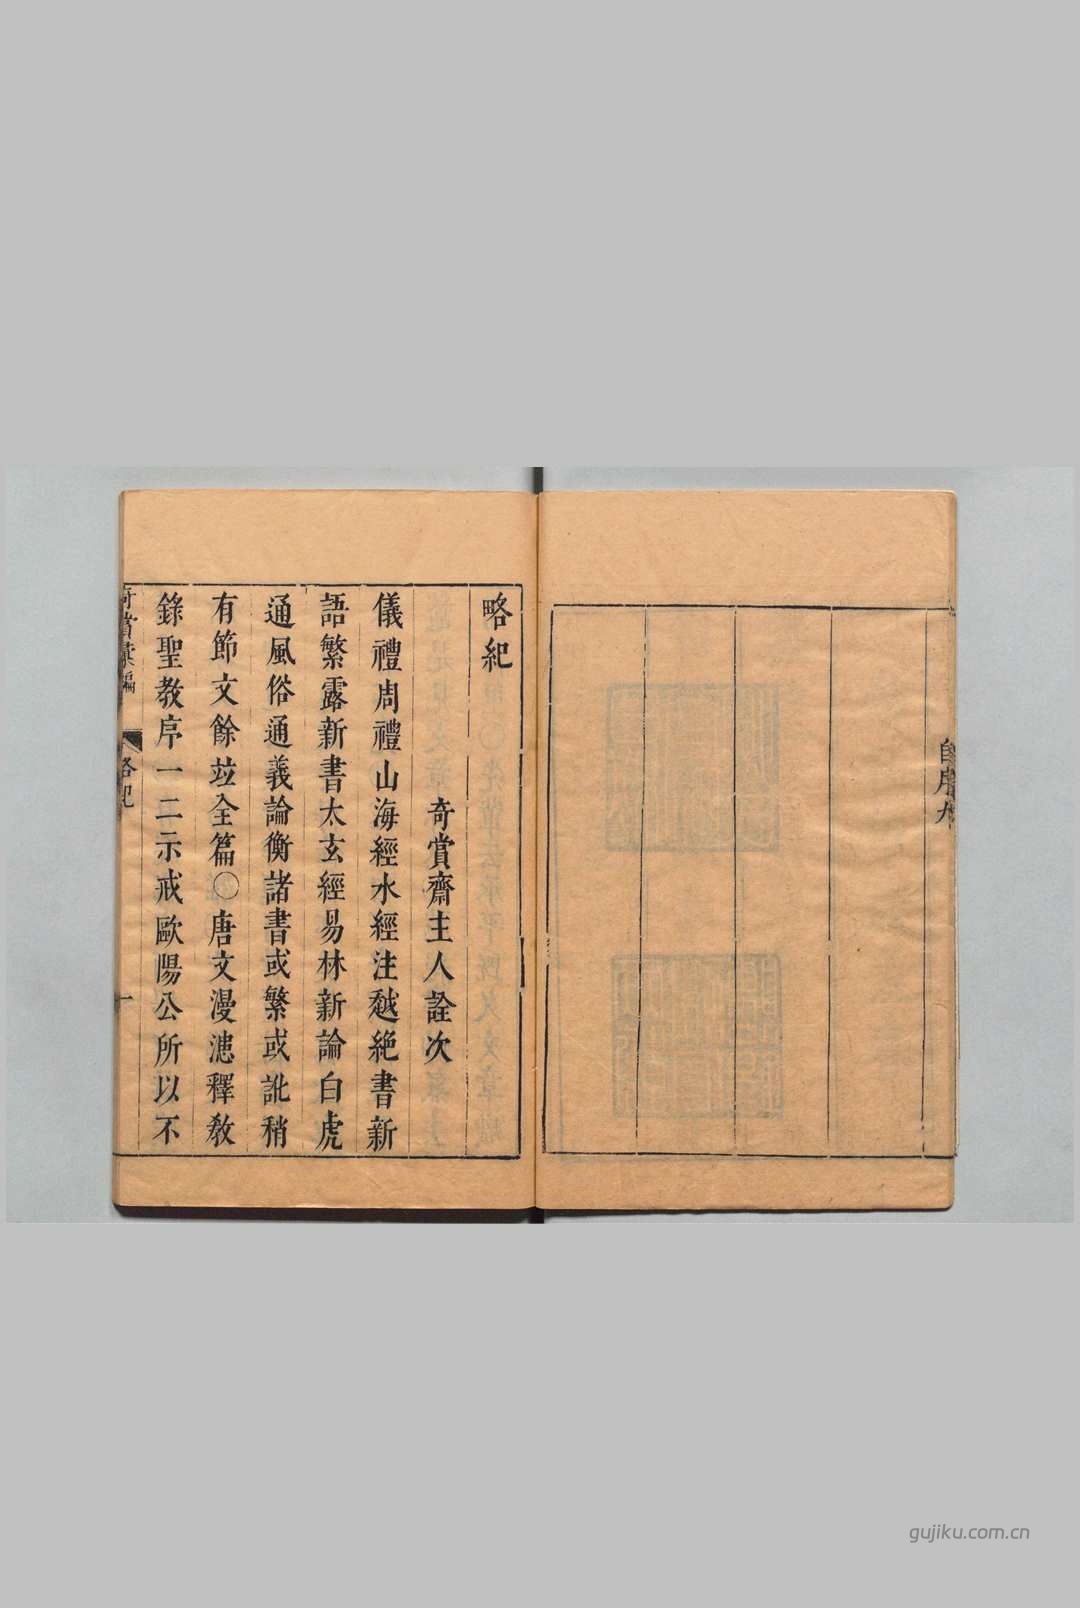 自序九
略紀
奇賞齋主人詮次
儀禮周禮山海經水經注越絶書新
語繁露新書太玄經易林新論白虎
通風俗通義論衡諸書或繁或訛稍
有節文餘竝全篇〇唐文漫漶釋教
錄聖教序一二示戒歐陽公所以不
奇賞彙編
略紀
一
gujiku.com.cn